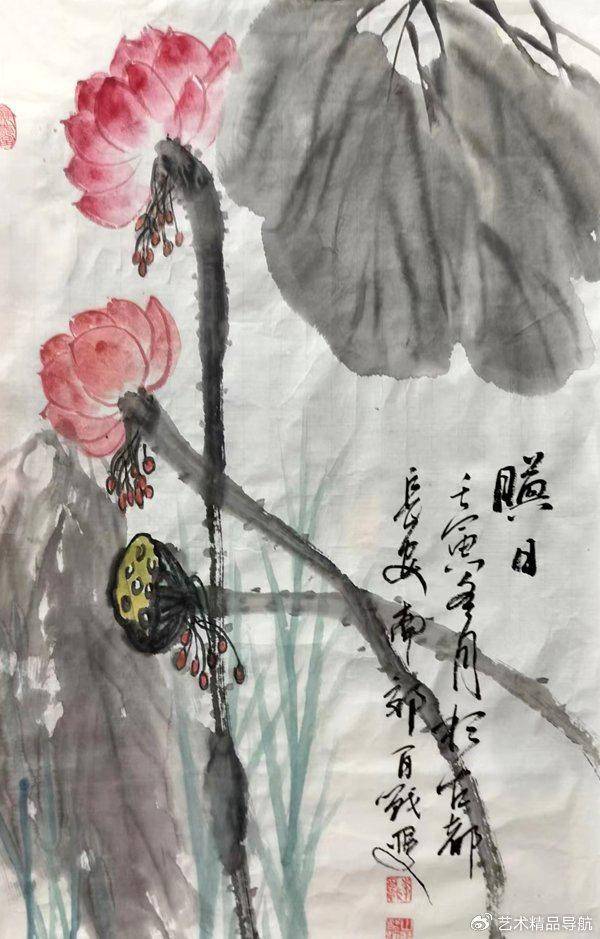 暎日
壬寅冬月於古都
長安南郊百
艺术精品导航